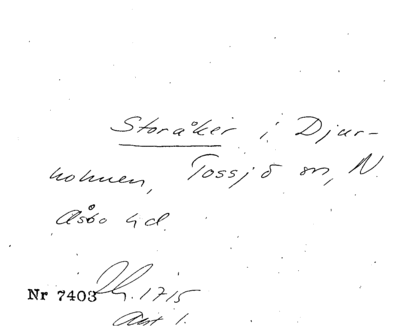 Storåker i Djur-
holmen, Tossjö sn, N.
Åsbo hd.
Nr 7403 1715
Akt 1.